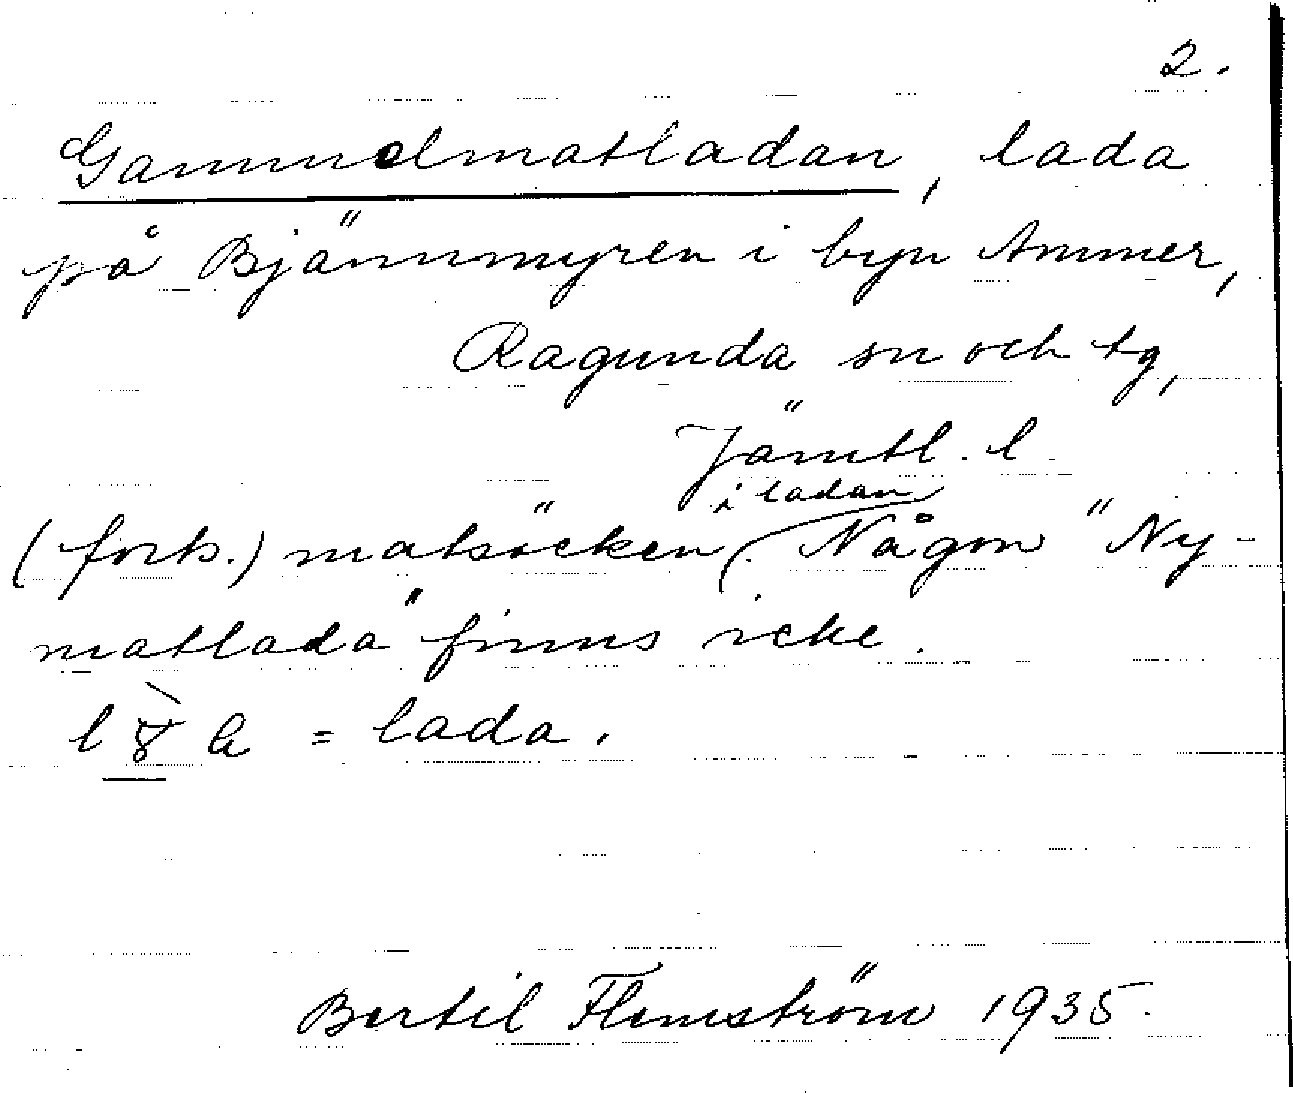 2.
Gammelmatladan, lada
på Bjännmyren i byn Ammer,
Ragunda sn och tg,
Jämtl. l.
i ladan
(forts.) matsäcken. Någon "Ny-
matlada" finns icke.
= lada.
Bertil Flemström 1935.